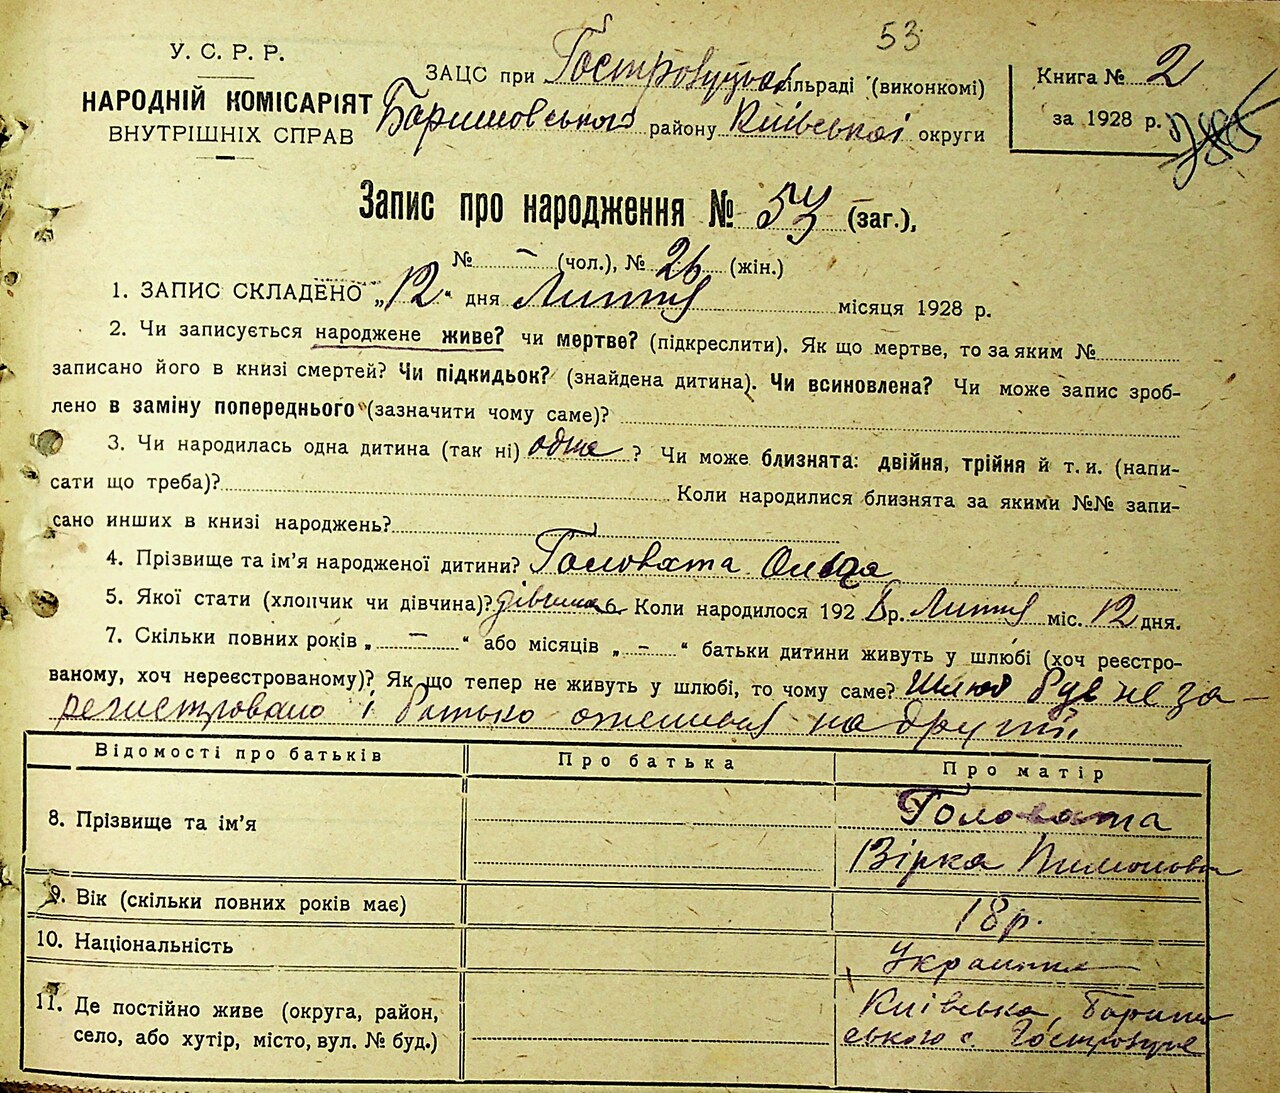 53
У. С. Р. Р.
НАРОДНІЙ КОМІСАРІЯТ
ВНУТРІШНІХ СПРАВ
ЗАЦС при сільраді (виконкомі)
району Київської округи
Книга № 2
за 1928 р.
Запис про народження № 53 (заг.),
№ – (чол.), № 26 (жін.)
1. ЗАПИС СКЛАДЕНО „12“ дня Лютня місяця 1928 р.
2. Чи записується народжене живе? чи мертве? (підкреслити). Як що мертве, то за яким №
записано його в книзі смертей? Чи підкидьок? (знайдена дитина). Чи всиновлена? Чи може запис зроб-
лено в заміну попереднього (зазначити чому саме)?
3. Чи народилась одна дитина (так ні) одне ? Чи може близнята: двійня, трійня й т. и. (напи-
сати що треба)? Коли народилися близнята за якими №№ запи-
сано инших в книзі народжень?
4. Прізвище та ім’я народженої дитини? Головата Ольга
5. Якої стати (хлопчик чи дівчина)? дівчина 6. Коли народилось 1928 р. Лютня міс. 12 дня.
7. Скільки повних років „ — “ або місяців „ – “ батьки дитини живуть у шлюбі (хоч реєстро-
ваному, хоч нереєстрованому)? Як що тепер не живуть у шлюбі, то чому саме? Шлюб був не за-
регистровано і батько оженився на другій
Відомості про батьків Про батька Про матір
8. Прізвище та ім’я Головата
Вірка
9. Вік (скільки повних років має) 18 р.
10. Національність Українка
11. Де постійно живе (округа, район, Київська,
село, або хутір, місто, вул. № буд.) с.